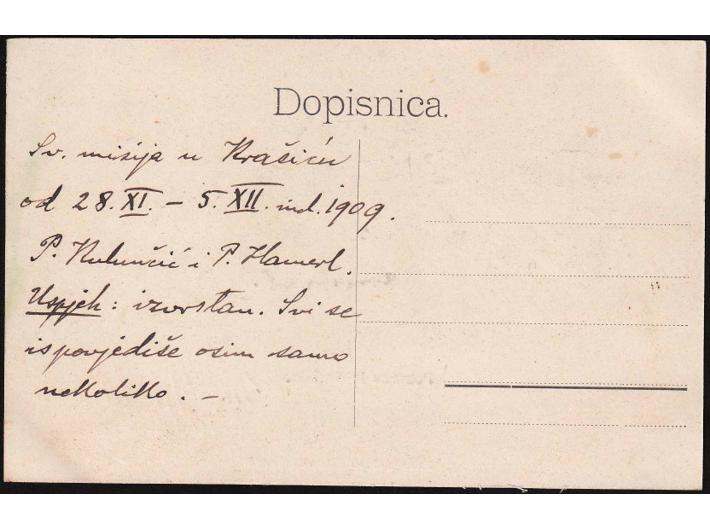 Dopisnica.
Sv. misija u Krašiću
od 28. XI. – 5. XII. incl. 1909.
P. Kulunčić i P. Hamerl.
Uspjeh: izvrstan. Svi se
ispovjediše osim samo
nekoliko. –